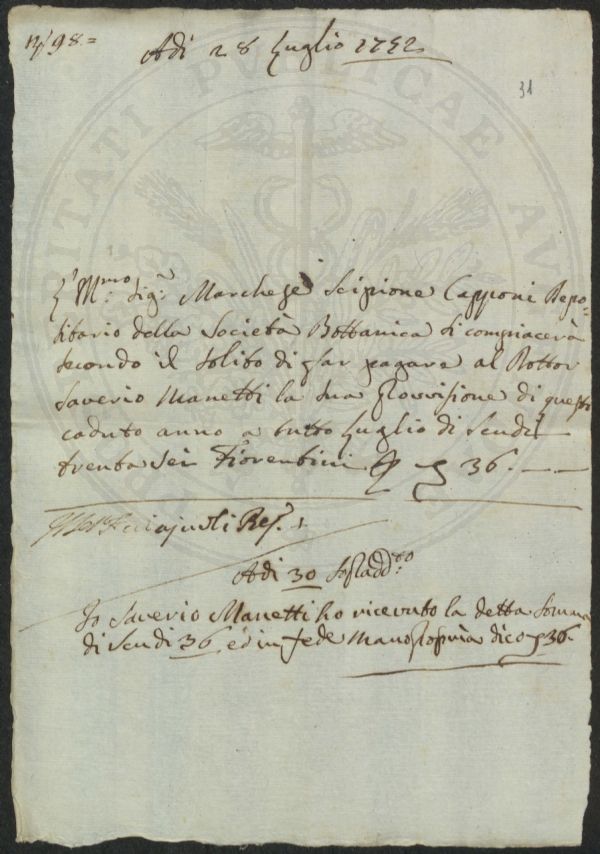 N° 98.=
Adì 28 Luglio 1752.
31
L'Ill.mo Sig.r Marchese Scipione Capponi Depo-
sitario della Società Bottanica si compiacerà
secondo il solito di far pagare al Dottor
Saverio Manetti la sua provisione di questo
caduto anno a tutto Luglio di Scudi
trenta sei Fiorentini 36. — —
Acciajuoli
Adì 30 sopradd.to
Io Saverio Manetti ho ricevuto la detta Somma
di Scudi 36. ed in fede mano propria dico 36.
PUBLICAE